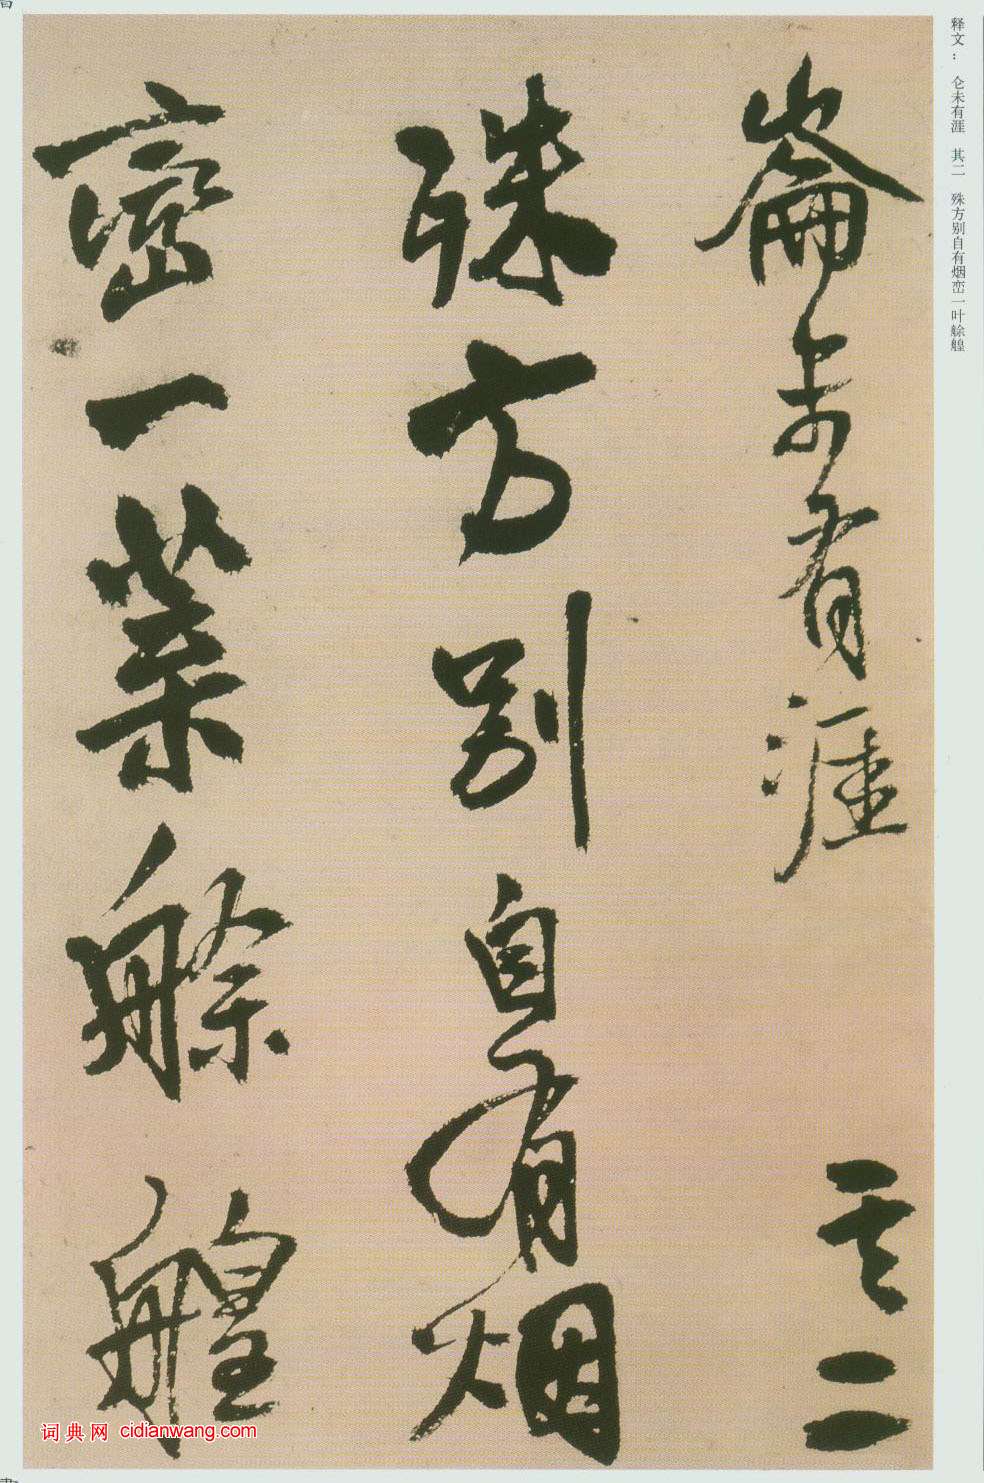 释文： 仑未有涯 其二 殊方别自有烟峦一叶艅艎
崙未有涯 其二
殊方别自有烟
峦一葉艅艎
词典网 cidianwang.com